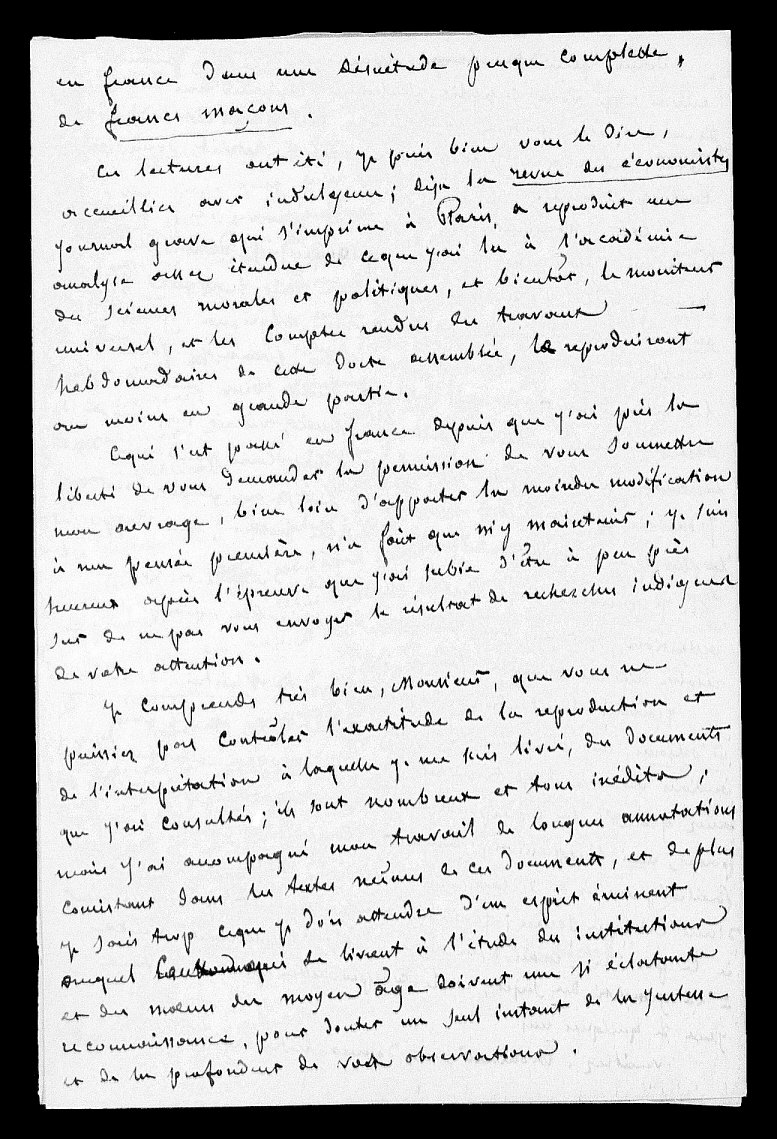 en france dans une désuétude presque complette,
de francs maçons.
Ces lectures ont été, je puis bien vous le dire,
accueillies avec indulgence ; déjà la revue des économistes
journal grave qui s'imprime à Paris, a reproduit une
analyse assez étendue de ce que j'ai lu à l'académie
des sciences morales et politiques, et bientôt, le moniteur
universel, et les Comptes rendus des travaux
hebdomadaires de cette docte assemblée, la reproduiront
au moins en grande partie.
Ce qui s'est passé en france depuis que j'ai pris la
liberté de vous demander la permission de vous soumettre
mon ouvrage, bien loin d'apporter la moindre modification
à ma pensée première, n'a fait que m'y maintenir ; je suis
heureux après l'épreuve que j'ai subie d'être à peu près
sur de ne pas vous envoyer le résultat de recherches indignes
de votre attention.
Je comprends très bien, Monsieur, que vous ne
puissiez pas contrôler l'exactitude de la reproduction et
de l'interprétation à laquelle je me suis livré, des documents
que j'ai consultés ; ils sont nombreux et tous inédits ;
mais j'ai accompagné mon travail de longues annotations
consistant dans les textes mêmes de ces documents, et de plus
je sais trop ce que je dois attendre d'un esprit éminent
auquel se livrent à l'étude des institutions
et des mœurs du moyen âge doivent une si éclatante
reconnaissance, pour douter un seul instant de la justesse
et de la profondeur de vos observations.